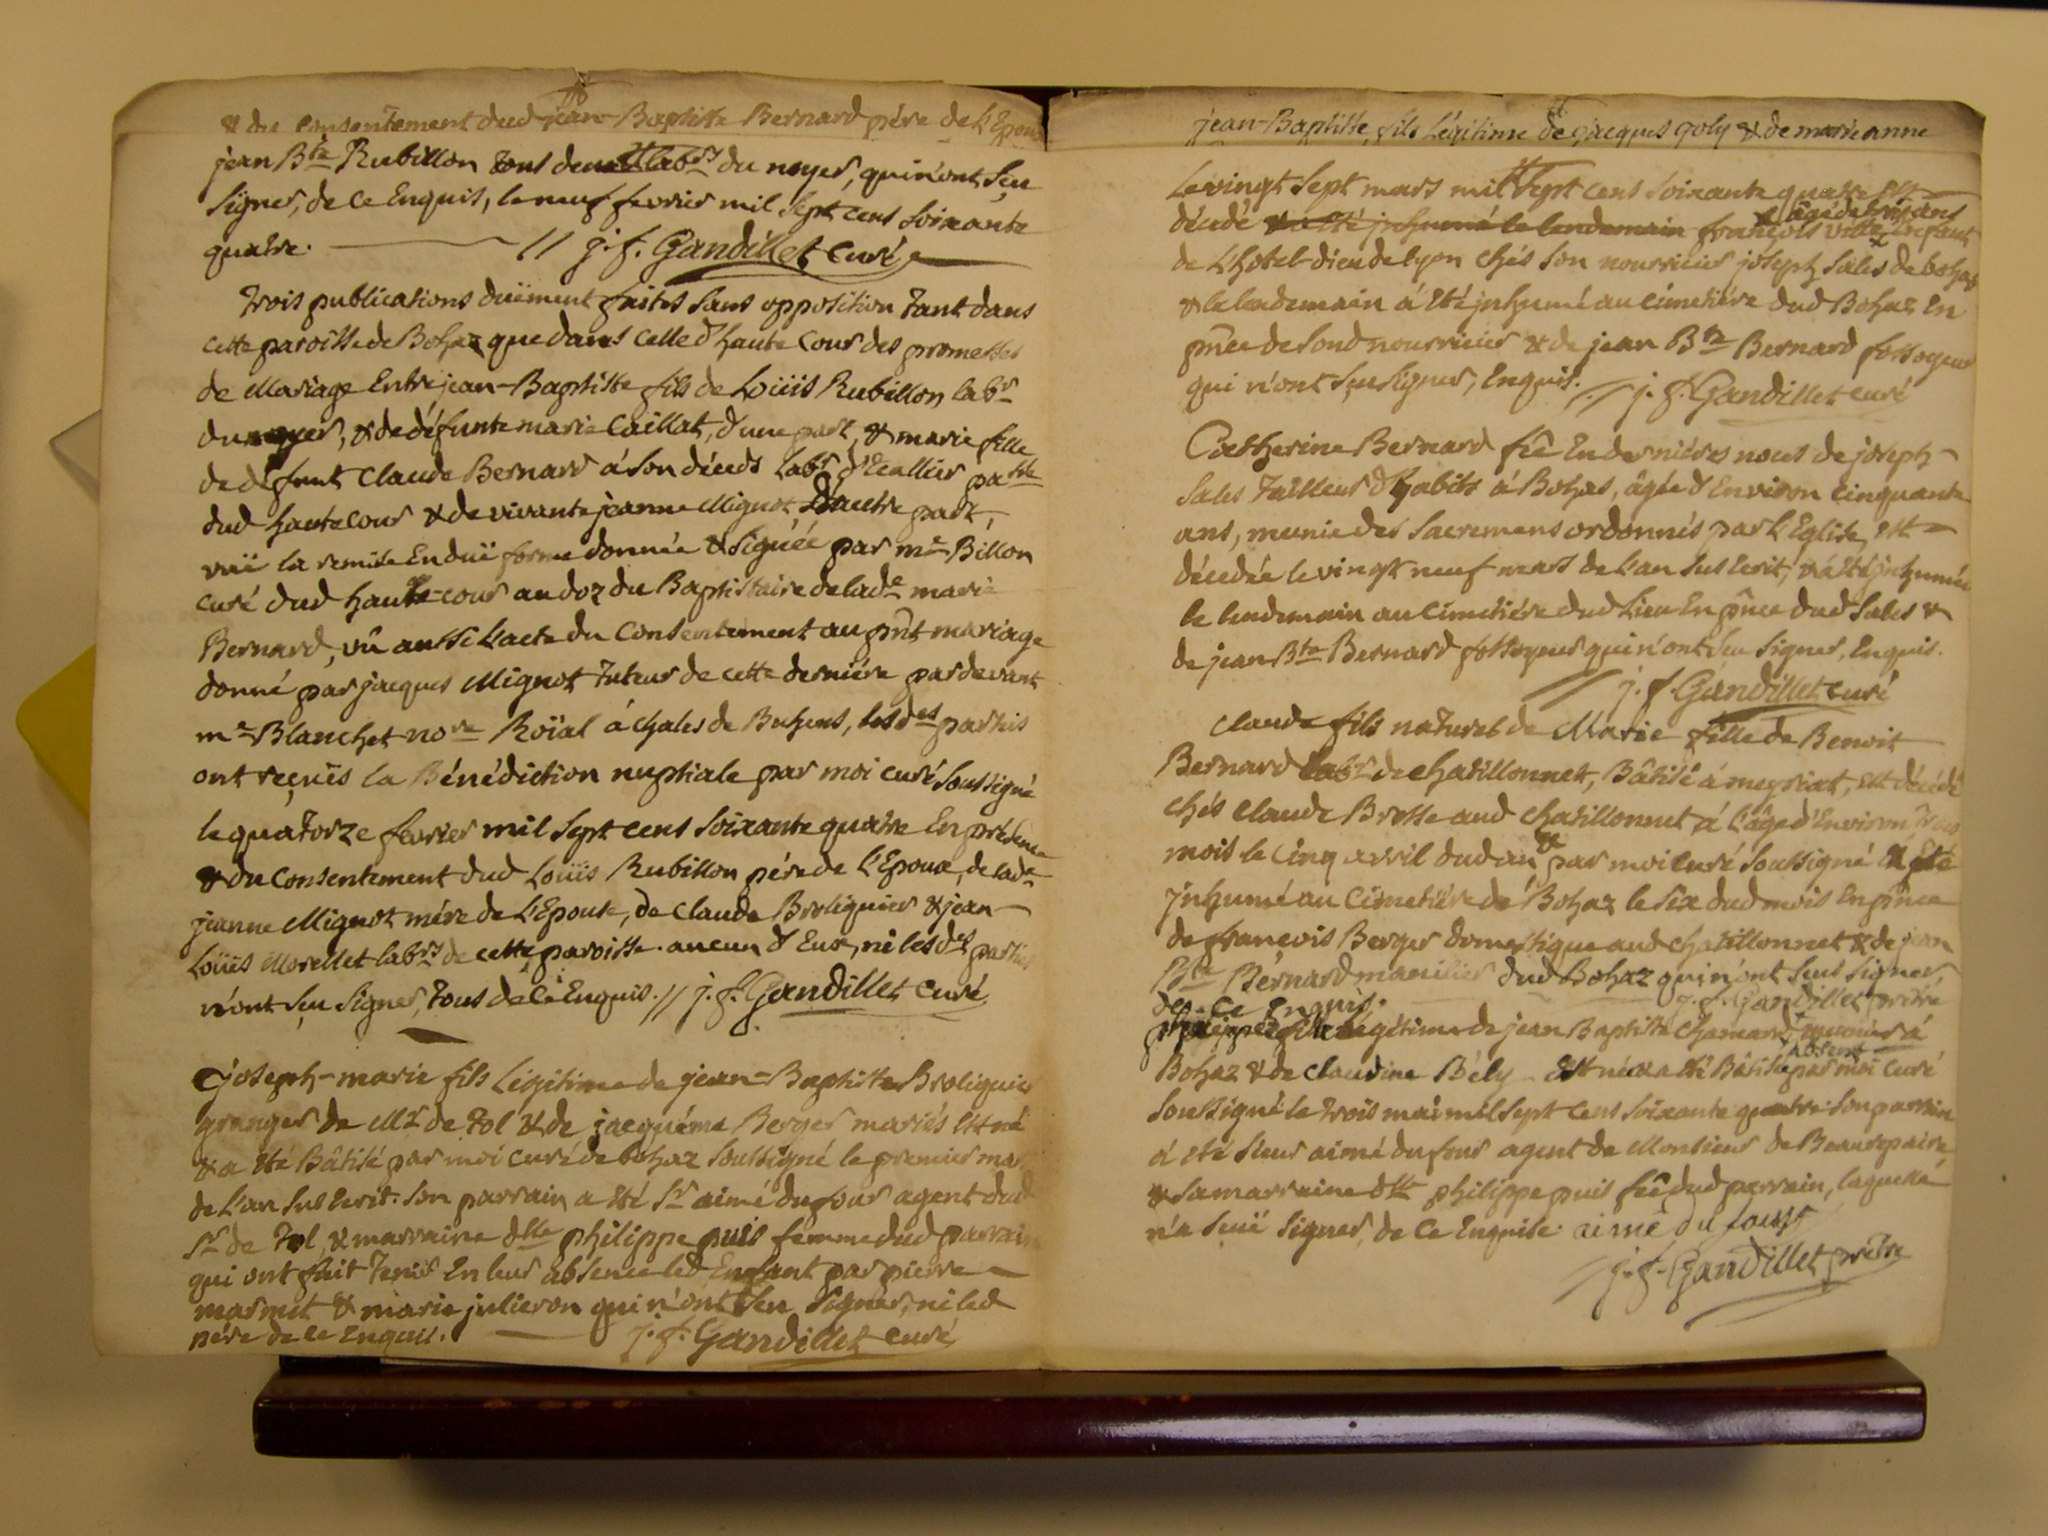 & du consentement dud jean-Baptiste Bernard pére de L'Epouse
jean Bte Rubillon tous deux labrs du noyer, qui n'ont sçu
signer, de ce Enquis, le neuf fevrier mil sept cens soixante
quatre. // j. f. Gandillet curé
trois publications duëment faites sans opposition tant dans
cette paroisse de Bohaz que dans celle d'haute cour des promesses
de Mariage Entre jean-Baptiste fils de Loüis Rubillon labr
du noyer, & de défunte marie Caillat, d'une part, & marie fille
de défunt Claude Bernard á son décéds labr d'Ecallier psse
dud hautecour & de vivante jeanne Mignot d'autre part,
vüe la remise En duë forme donnée & signéé par me Billon
curé dud haute-cour au doz du Baptistaire de lade marie
Bernard, vû aussi L'acte du Consentement au pñt mariage
donné par jacques Mignot tuteur de cette derniére pardevant
me Blanchet nore Roïal á chales de Buhens, lesdes parties
ont reçuës la Bénédiction nuptiale par moi curé soussigné
le quatorze fevrier mil sept cens soixante quatre En présence
& du consentement dud Loüis Rubillon pére de L'Epoux, de lade
jeanne Mignot mére de L'Epouse, de Claude Broliquier & jean-
Loüis Morellet labrs de cette paroisse. aucun d'Eux, ni lesdes parties
n'ont sçu signer, tous de ce Enquis. // j. f. Gandillet curé
joseph-marie fils Légitime de jean-Baptiste Broliquier
granger de Mr de tol & de jacquéme Berger mariés est né
& a été Bâtisé par moi curé de bohaz soussigné le premier mars
de L'an sus Ecrit. son parrain a été Sr aimé dufour agent dud
Sr de tol, & marraine dlle philippe puis femme dud parrain
qui ont fait tenir En leur absence led Enfant par pierre
marmet & marie julieron qui n'ont sçu signer, ni led
pére de ce Enquis. j. f. Gandillet curé
jean-Baptiste, fils Légitime de jacques goly & de marie anne
Le vingt sept mars mil sept cens soixante quatre est
âgé de huit ans
décédé & a été inhumé le lendemain françois ville Enfant
de L'hotel-dieu de lyon chés son nourricier joseph sales de bohaz
& le lendemain á été inhumé au cimetiére dud Bohaz En
pñce de sond nourricier & de jean Bte Bernard fossoyeur
qui n'ont sçu signer, Enquis. // j. f. Gandillet curé
Catherine Bernard fẽ En derniéres noces de joseph
sales tailleur d'habits á Bohas, âgée d'Environ cinquante
ans, munie des sacremens ordonnés par L'Eglise, est
décédée le vingt neuf mars de L'an sus Ecrit, & a été inhumée
le lendemain au cimetiére dud Lieu En pñce dud sales &
de jean Bte Bernard fossoyeur qui n'ont sçu signer, Enquis.
// j. f. Gandillet curé
Claude fils naturel de Marie fille de Benoit
Bernard labr de chatillonnet, Bâtisé á meyriat, est décédé
chés Claude Brosse aud chatillonnet á L'âge d'Environ trois
mois le cinq avril dud an & par moi curé soussigné a été
inhumé au Cimetiére de Bohaz le six dud mois En pñce
de francois Berger domestique aud chatillonnet & de jean
Bte Bernard manilier dud Bohaz qui n'ont sçus signer,
de ce Enquis. j. f. Gandillet prêtre
philippe fille Légitime de jean Baptiste chamard meunier á
absent
Bohaz & de Claudine Bély est née & a été Bâtisée par moi curé
soussigné le trois mai mil sept cens soixante quatre. son parrain
á été sieur aimé dufour agent de Monsieur de Beaurepaire
& sa marraine dlle philippe puis fẽ dud parrain, laquelle
n'a sçuë signer, de ce Enquise. aimé du four
// j. f. Gandillet prêtre